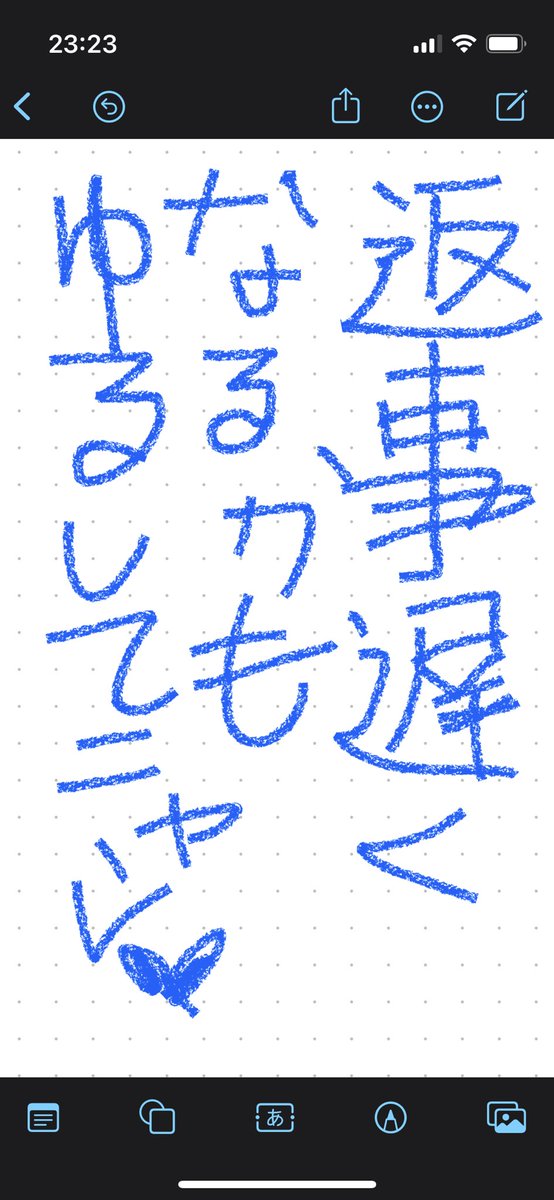 23:23
返事遅く
なるかも
ゆるしてニャン♥
あ